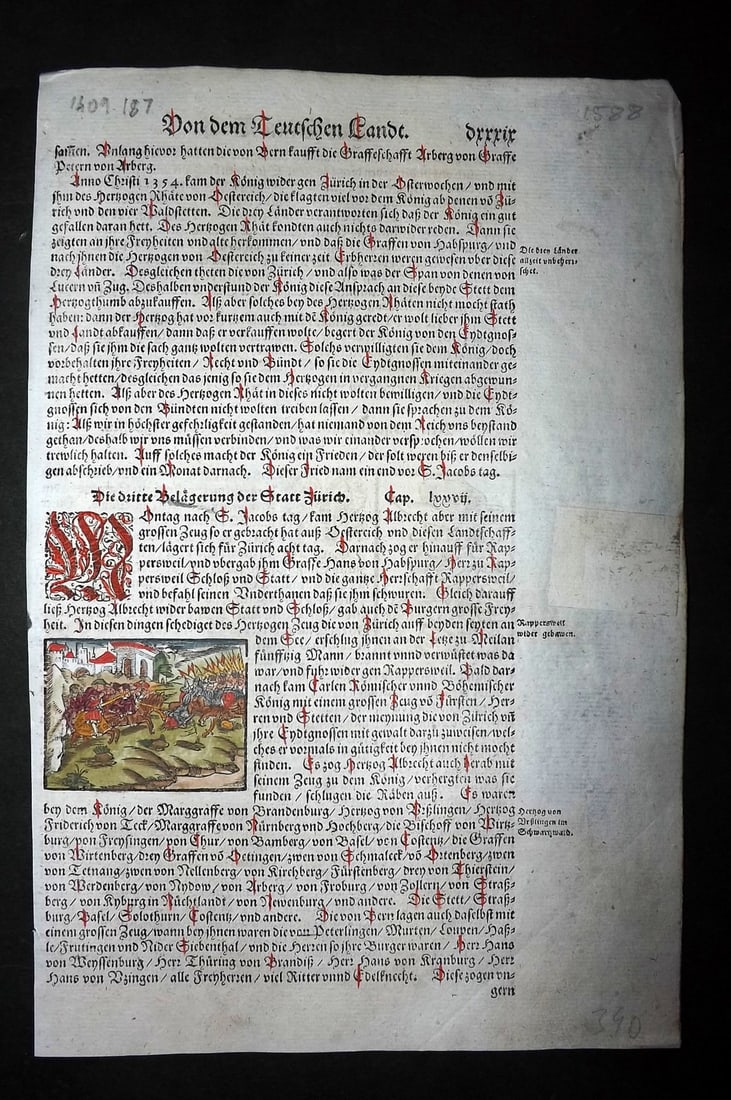 1609.187
1588
Von dem Teutschen Landt.
dxxxix
samẽn. Anlang hievor hatten die von Bern kaufft die Graffeschafft Arberg von Graffe
Petern von Arberg.
Anno Christi 1354. kam der König wider gen Zürich in der Osterwochen / vnd mit
jhm des Hertzogen Rhäte von Oestereich / die klagten viel vor dem König ab denen võ Zü-
rich vnd den vier Waldstetten. Die drey Länder verantworten sich daß der König ein gut
gefallen daran hett. Des Hertzogen Rhät kondten auch nichts darwider reden. Dann sie
zeigten an jhre Freyheiten vnd alte herkommen / vnd daß die Graffen von Habspurg / vnd
nach jhnen die Hertzogen von Oestereich zu keiner zeit Erbherren weren gewesen vber diese
drey Länder. Desgleichen theten die von Zürich / vnd also was der Span von denen von
Lucern vñ Zug. Deshalben vnderstund der König diese Ansprach an diese beyde Stett dem
Hertzogthumb abzukauffen. Alß aber solches bey des Hertzogen Rhäten nicht mocht stath
haben: dann der Hertzog hat vor kurtzem auch mit dẽ König geredt / er wolt lieber jhm Stett
vnd Landt abkauffen / dann daß er verkauffen wolte / begert der König von den Eydtgnos-
sen / daß sie jhm die sach gantz wolten vertrawen. Solchs verwilligten sie dem König / doch
vorbehalten jhre Freyheiten / Recht vnd Bündt / so sie die Eydtgnossen miteinander ge-
macht hetten / desgleichen das jenig so sie dem Hertzogen in vergangnen Kriegen abgewun-
nen hetten. Alß aber des Hertzogen Rhät in dieses nicht wolten bewilligen / vnd die Eydt-
gnossen sich von den Bündten nicht wolten treiben lassen / dann sie sprachen zu dem Kö-
nig: Alß wir in höchster gefehrligkeit gestanden / hat niemand von dem Reich vns beystand
gethan / deshalb wir vns müssen verbinden / vnd was wir einander versprochen / wöllen wir
trewlich halten. Auff solches macht der König ein Frieden / der solt weren biß er denselbi-
gen abschrieb / vnd ein Monat darnach. Dieser Fried nam ein end vor S. Jacobs tag.
Die drey Länder
allzeit vnbeherr-
schet.
Die dritte Belägerung der Statt Zürich. Cap. lxxvij.
MOntag nach S. Jacobs tag / kam Hertzog Albrecht aber mit seinem
grossen Zeug so er gebracht hat auß Oestereich vnd diesen Landtschaff-
ten / lägert sich für Zürich acht tag. Darnach zog er hinauff für Rap-
persweil / vnd vbergab jhm Graffe Hans von Habspurg / Herr zu Rap-
persweil Schloß vnd Statt / vnd die gantze Herrschafft Rappersweil /
vnd befahl seinen Vnderthanen daß sie jhm schwuren. Gleich darauff
ließ Hertzog Albrecht wider bawen Statt vnd Schloß / gab auch dẽ Burgern grosse Frey-
heit. In diesen dingen schediget des Hertzogen Zeug die von Zürich auff beyden seyten an
dem See / erschlug jhnen an der Letze zu Meilan
fünfftzig Mann / brannt vnnd verwüstet was da
war / vnd fuhr wider gen Rappersweil. Bald dar-
nach kam Carlen Römischer vnnd Böhemischer
König mit einem grossen Zeug võ Fürsten / Her-
ren vnd Stetten / der meynung die von Zürich vñ
jhre Eydtgnossen mit gewalt darzu zuweisen / wel-
ches er vormals in gütigkeit bey jhnen nicht mocht
finden. Es zog Hertzog Albrecht auch herab mit
seinem Zeug zu dem König / verhergten was sie
funden / schlugen die Räben auß. Es waren
Rappersweil
wider gebawen.
bey dem König / der Marggraffe von Brandenburg / Hertzog von Vrßlingen / Hertzog
Friderich von Teck / Marggraffe von Nürnberg vnd Hochberg / die Bischoff von Wirtz-
burg / von Freysingen / von Chur / von Bamberg / von Basel / von Costentz / die Graffen
von Wirtenberg / drey Graffen võ Oetingen / zwen von Schmaleck / võ Ortenberg / zwen
von Tetnang / zwen von Nellenberg / von Kirchberg / Fürstenberg / drey von Thierstein /
von Werdenberg / von Nydow / von Arberg / von Froburg / von Zollern / von Straß-
berg / von Kyburg in Nüchtlandt / von Newenburg / vnd andere. Die Stett / Straß-
burg / Basel / Solothurn / Costentz / vnd andere. Die von Bern lagen auch daselbst mit
einem grossen Zeug / wann bey jhnen waren die von Peterlingen / Murten / Loupen / Haß-
le / Frutingen vnd Nider Siebenthal / vnd die Herren so jhre Burger waren / Herr Hans
von Weyssenburg / Herr Thüring von Brandiß / Herr Hans von Kranburg / Herr
Hans von Vzingen / alle Freyherren / viel Ritter vnnd Edelknecht. Diese zogen vn-
gern
Hertzog von
Vrßlingen im
Schwartzwald.
390